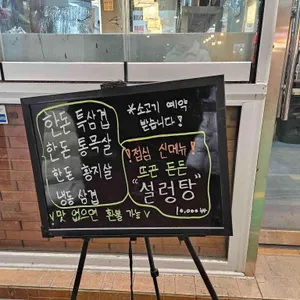 한돈 특삼겹
한돈 통목살
한돈 항정살
냉동 삼겹
※소고기 예약
받습니다!
!점심 신메뉴!
뜨끈 든든
"설렁탕"
10,000₩
∨맛 없으면 환불 가능∨